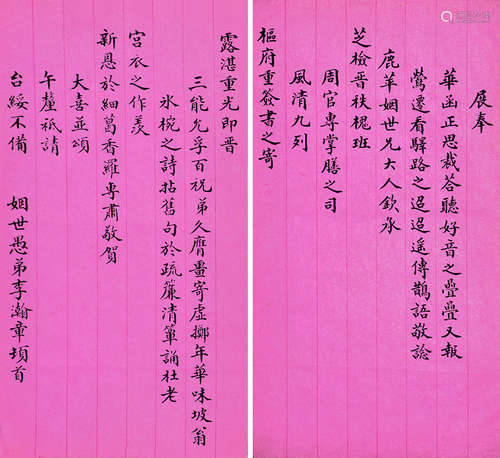 展奉
華函正思裁答聽好音之疊疊又報
鶯遷看驛路之迢迢遥傳鵲語敬諗
鹿苹姻世兄大人欽承
芝檢晋秩槐班
周官專掌膳之司
風清九列
樞府重簽書之寄
露湛重光即晋
三能允孚百祝弟久膺畺寄虚擲年華味坡翁
氷椀之詩拈舊句於疏簾清簟誦杜老
宫衣之作羡
新恩於細葛香羅專肅敬賀
大喜並頌
午釐祗請
台綏不備 姻世愚弟李瀚章頊首